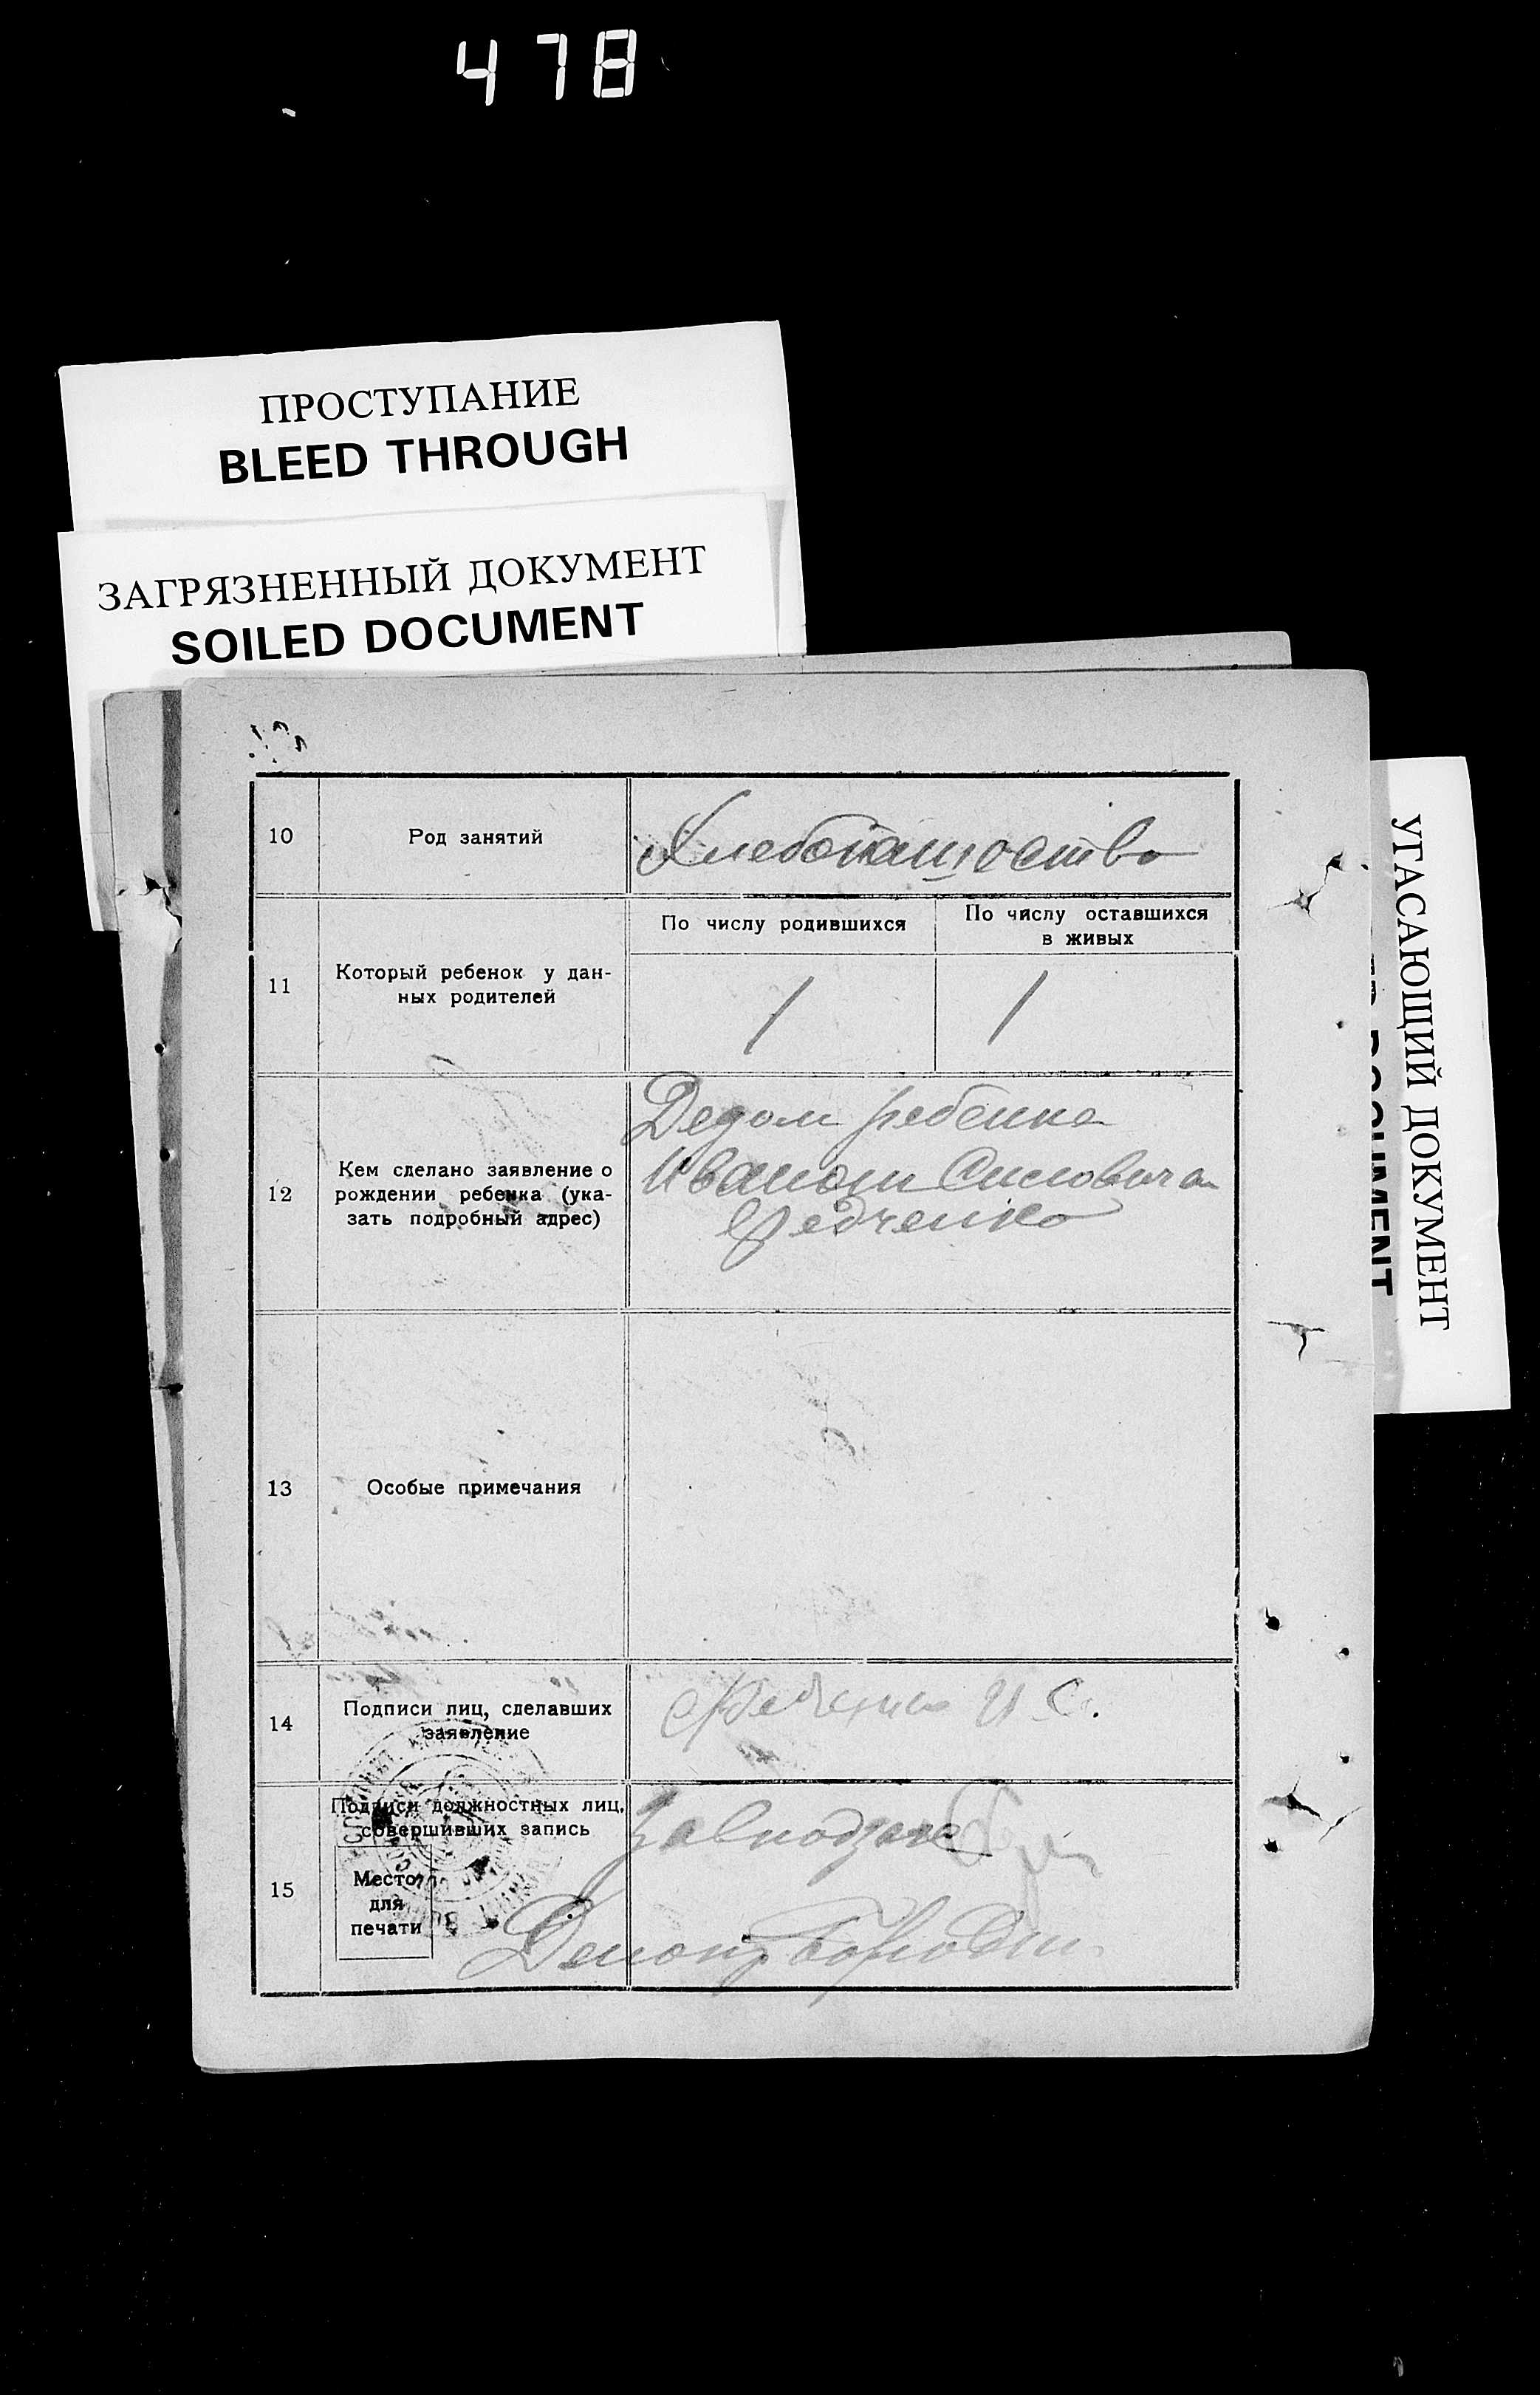 478
ПРОСТУПАНИЕ
BLEED THROUGH
ЗАГРЯЗНЕННЫЙ ДОКУМЕНТ
SOILED DOCUMENT
УГАСАЮЩИЙ ДОКУМЕНТ
DOCUMENT
10
Род занятий
Хлебопашество
11
Который ребенок у дан-
ных родителей
По числу родившихся
По числу оставшихся
в живых
1
1
12
Кем сделано заявление о
рождении ребенка (ука-
зать подробный адрес)
Дедом ребенка
Иваном
Федченко
13
Особые примечания
14
Подписи лиц, сделавших
заявление
И С.
15
Подписи должностных лиц,
совершивших запись
Место
для
печати